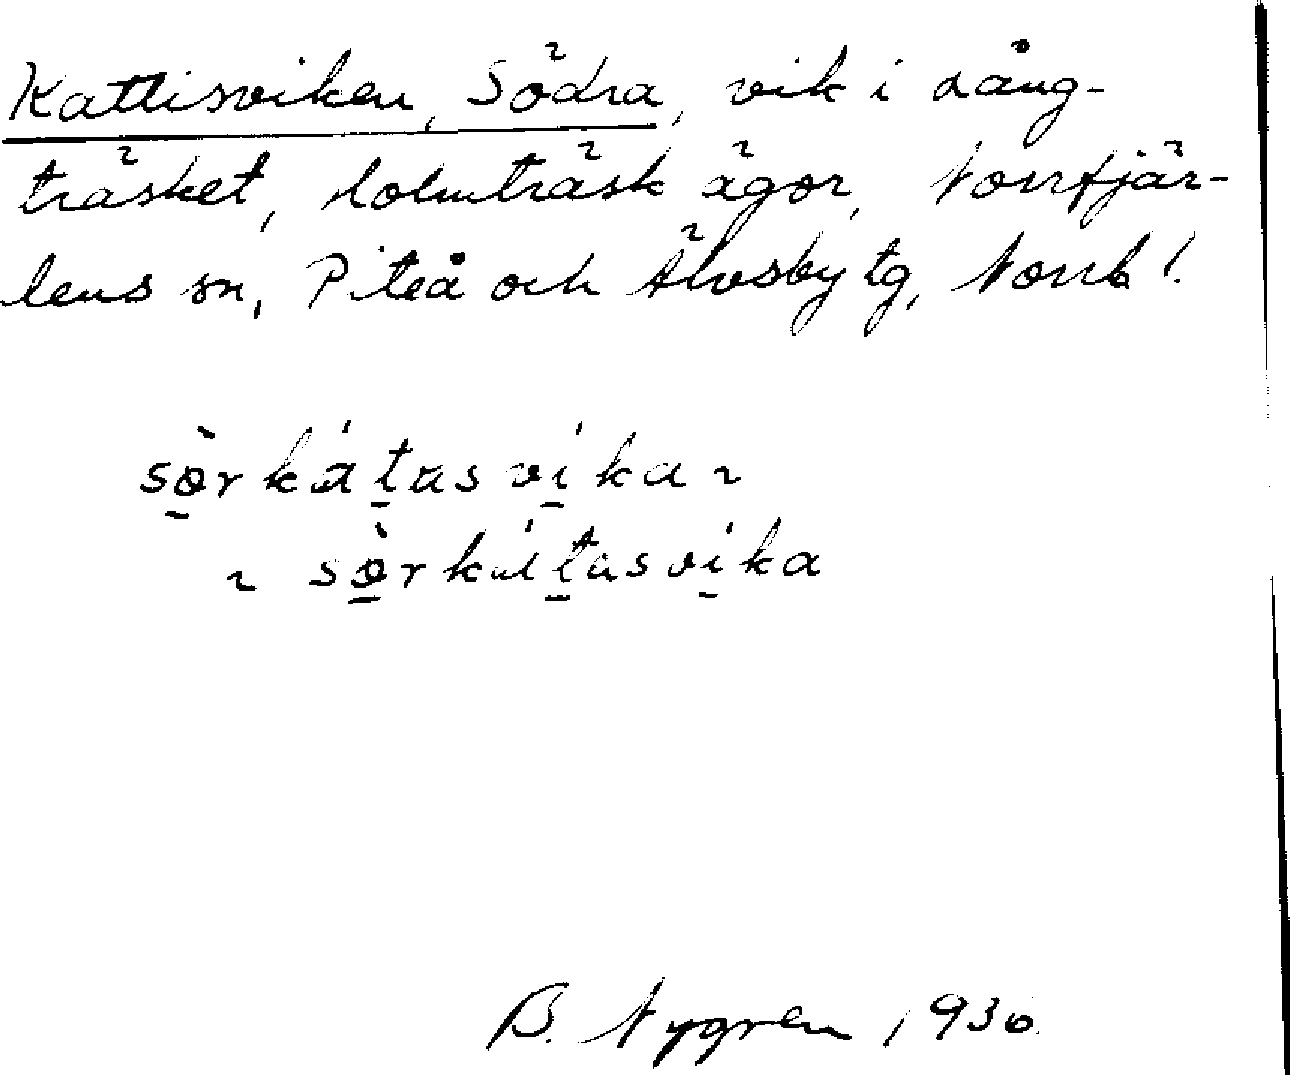 Kattisviken, Södra, vik i Lång-
träsket, Holmträsk ägor, Norrfjär-
dens sn, Piteå och Älvsby tg, Norrb l.
sø̱̀rkáṯasvi̱ka ~
~ sø̱̀rkáṯasvi̱ka
B. Nygren 1936